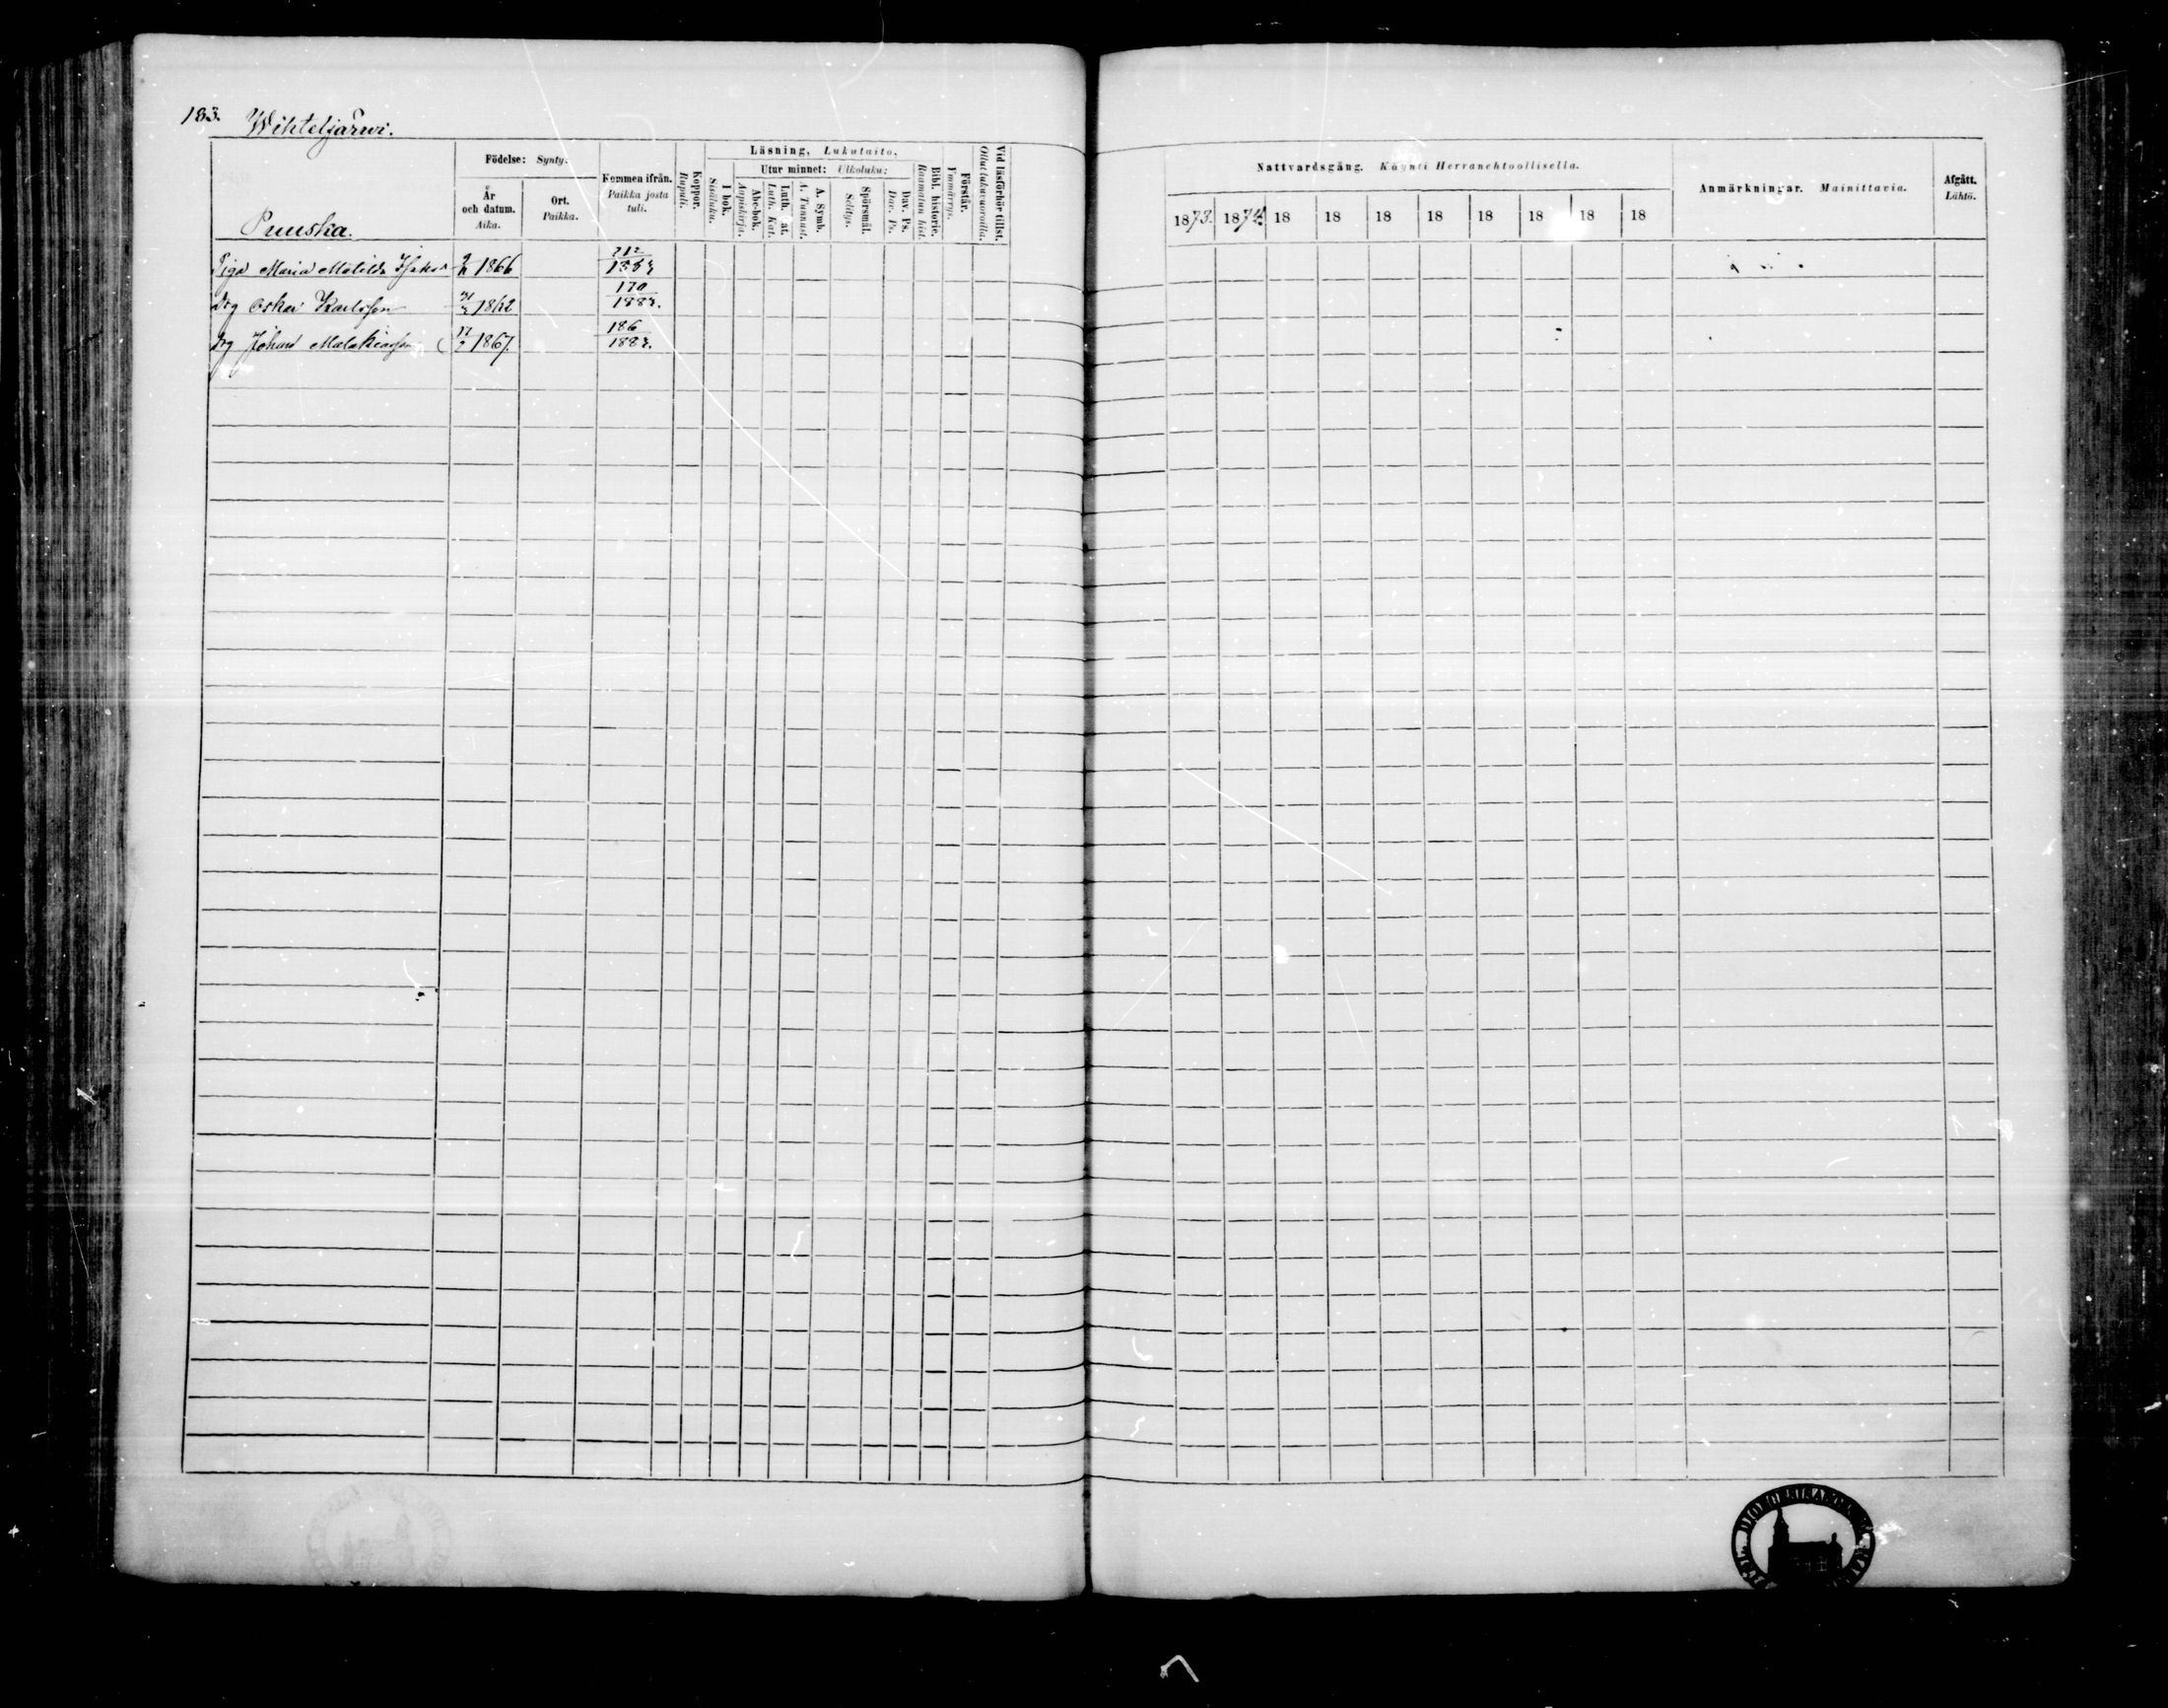 183. Wihteljärwi.
Födelse: Synty.
Kommen ifrån.
Paikka josta tuli.
Koppor.
Rupuli.
Läsning, Lukutaito.
I bok.
Sisäluku.
Utur minnet: Ulkoluku:
Abc-bok.
Aapiskirja.
Luth. Kat.
A. Symb.
A. Tunnust.
Spörsmål.
Selitys.
Dav. Ps.
Dav. Ps.
Bibl. historie.
Raamatun hist.
Förstår.
Ymmärrys.
Vid läsförhör tillst.
Ollut lukuvuoroilla.
År och datum.
Aika.
Ort.
Paikka.
Puuska.
Piga Maria Matilda 1866 212
Drg Oskar Karlsson 1862 170 1883.
Drg Johan 17/2 1867. 186 1883.
Nattvardsgång. Käynti Herranehtoollisella.
Anmärkningar. Mainittavia.
Afgått.
Lähtö.
1873. 1874. 18 18 18 18 18 18 18 18